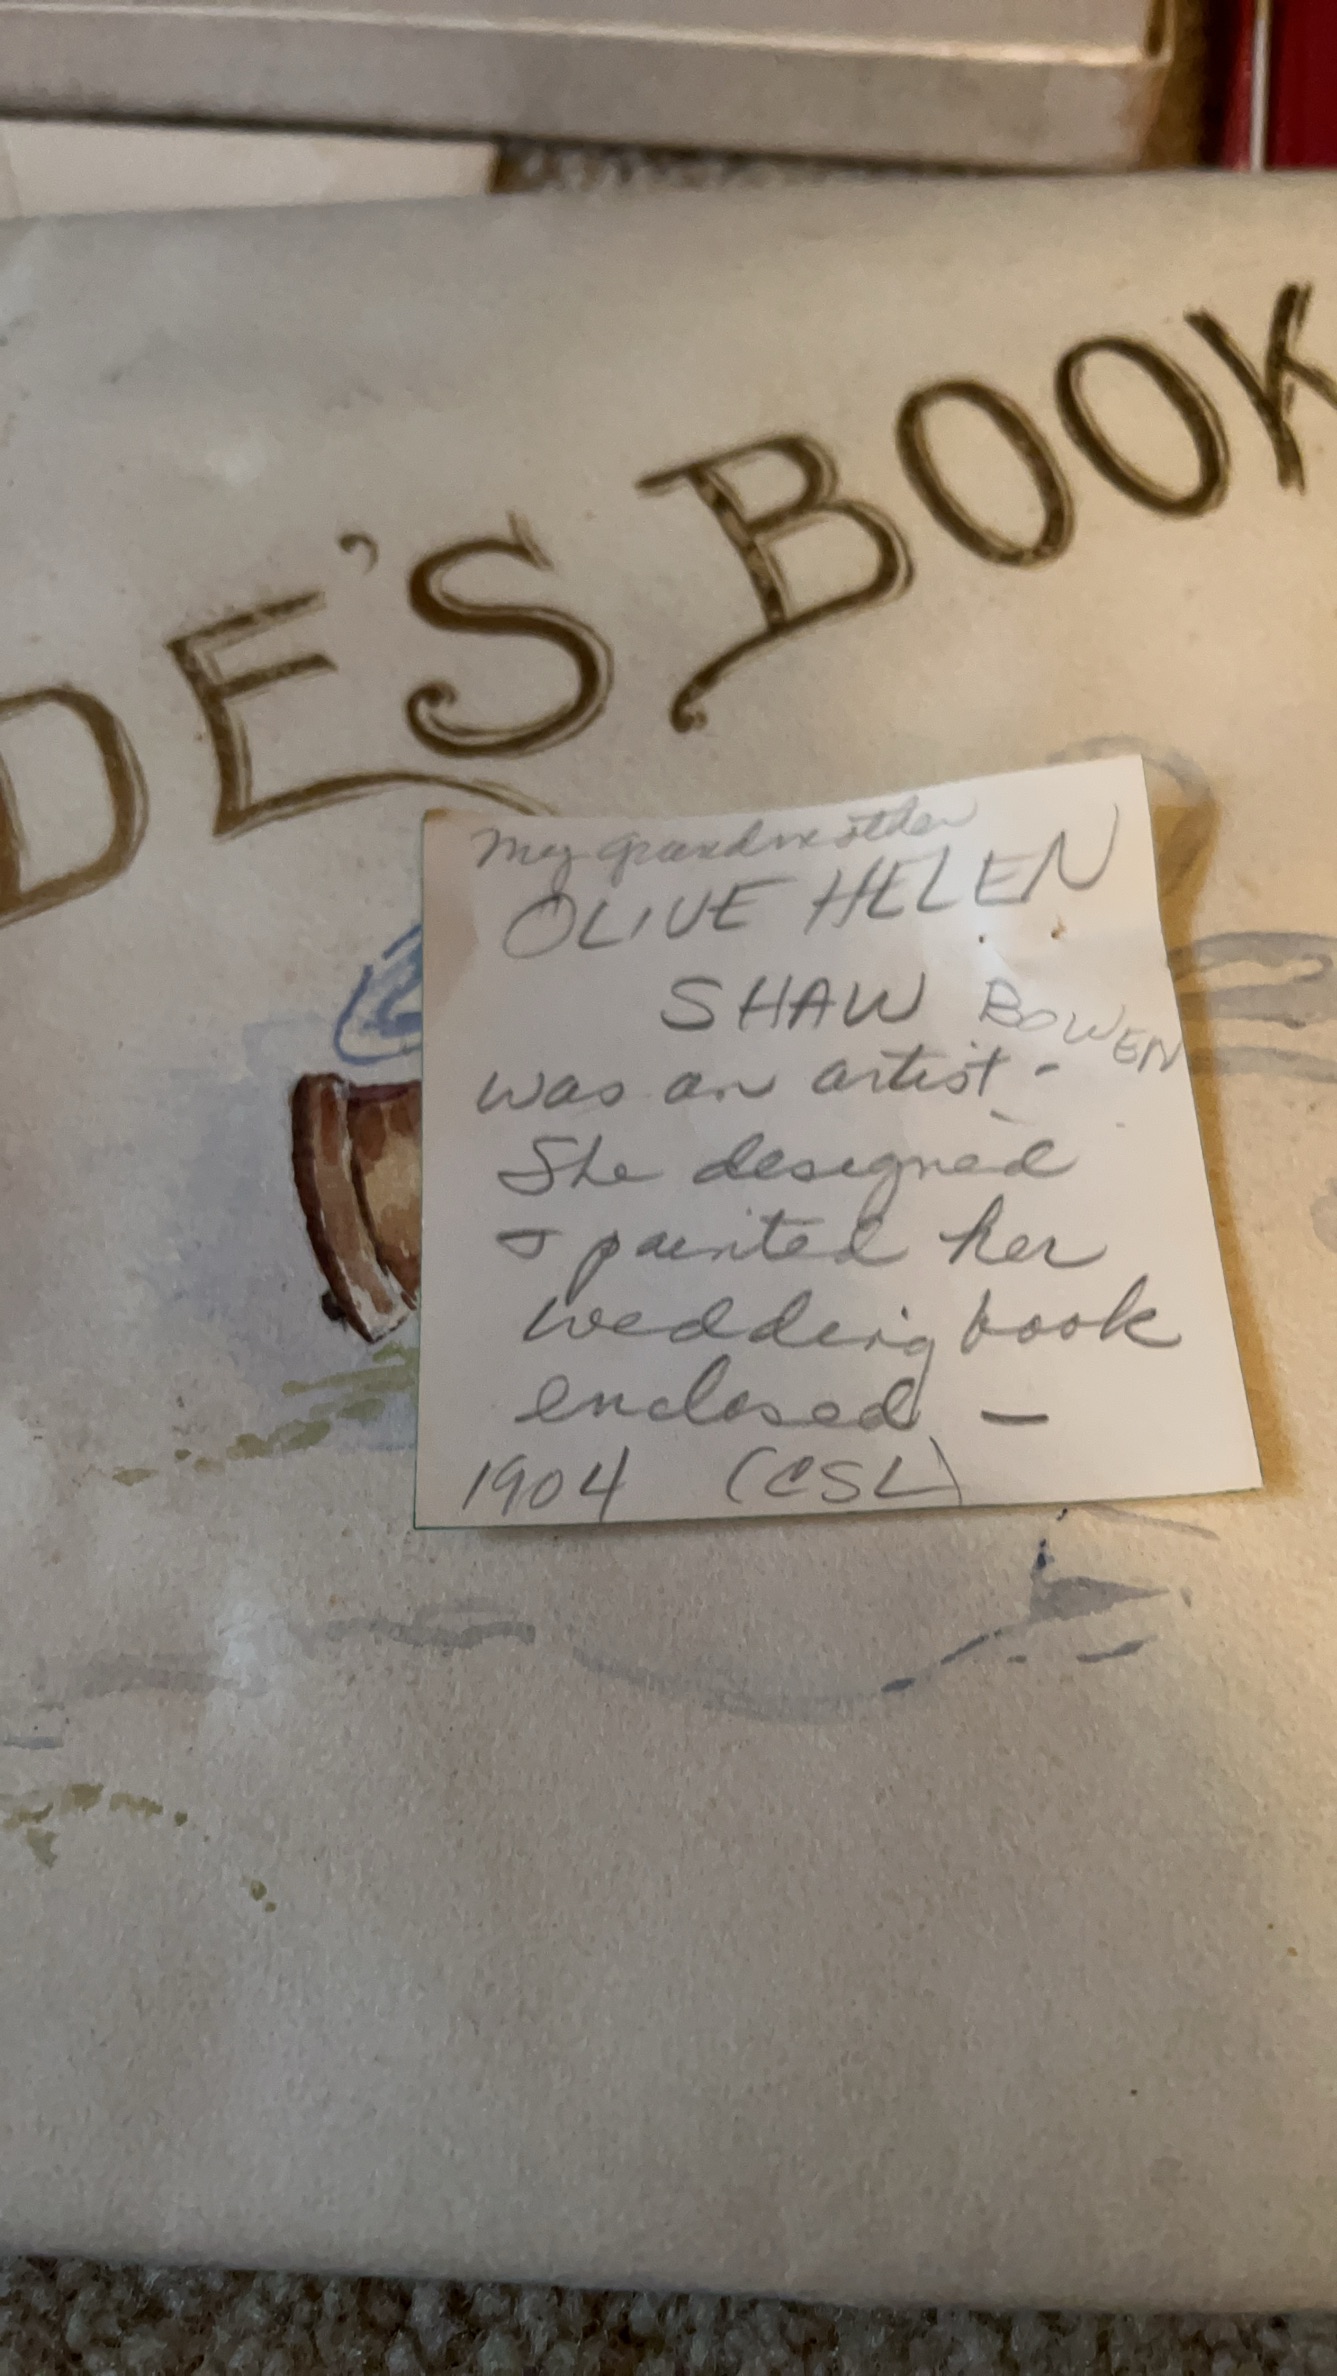 DE'S BOOK
My grandmother
OLIVE HELEN
SHAW BOWEN
was an artist -
She designed
& painted her
wedding book
enclosed —
1904 (CSL)